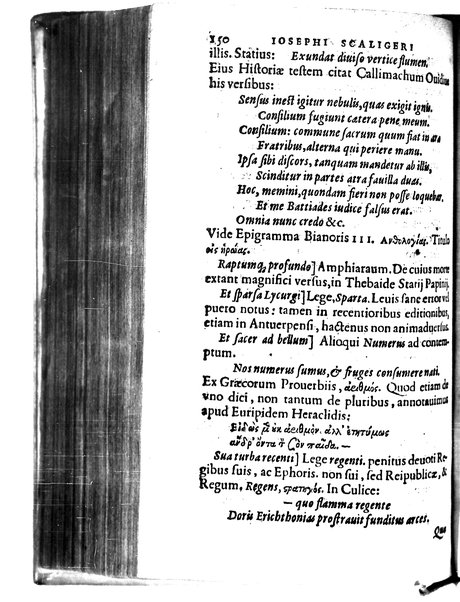 150 IOSEPHI SCALIGERI
illis. Statius: Exundat diuiso vertice flumen.
Eius Historiæ testem citat Callimachum Ouidius
his versibus:
Sensus inest igitur nebulis, quas exigit ignis.
Consilium fugiunt cætera pene meum.
Consilium: commune sacrum quum fiat in ara
Fratribus, alterna qui periere manu.
Ipsa sibi discors, tanquam mandetur ab illis,
Scinditur in partes atra fauilla duas.
Hoc, memini, quondam fieri non posse loquebar,
Et me Battiades iudice falsus erat.
Omnia nunc credo &c.
Vide Epigramma Bianoris III. Ανθολογίας. Titulo
εἰς ἥρωας.
Raptumq; profundo] Amphiaraum. De cuius morte
extant magnifici versus, in Thebaide Statij Papinij.
Et sparsa Lycurgi] Lege, Sparta. Leuis sane error vel
puero notus: tamen in recentioribus editionibus,
etiam in Antuerpensi, hactenus non animaduersus.
Et sacer ad bellum] Alioqui Numerus ad contem-
ptum.
Nos numerus sumus, & fruges consumere nati.
Ex Græcorum Prouerbiis, ἀριθμός. Quod etiam de
vno dici, non tantum de pluribus, annotauimus
apud Euripidem Heraclidis:
Εἰδὼς μὲν οὐκ ἀριθμὸν. ἀλλ' ἐτητύμως
ἄνδρ' ὄντα τὸν σὸν παῖδα. —
Sua turba recenti] Lege regenti. penitus deuoti Re-
gibus suis, ac Ephoris. non sui, sed Reipublicæ, &
Regum, Regens, στρατηγός. In Culice:
— quo flamma regente
Doris Erichthonias prostrauit funditus arces.
Quæ